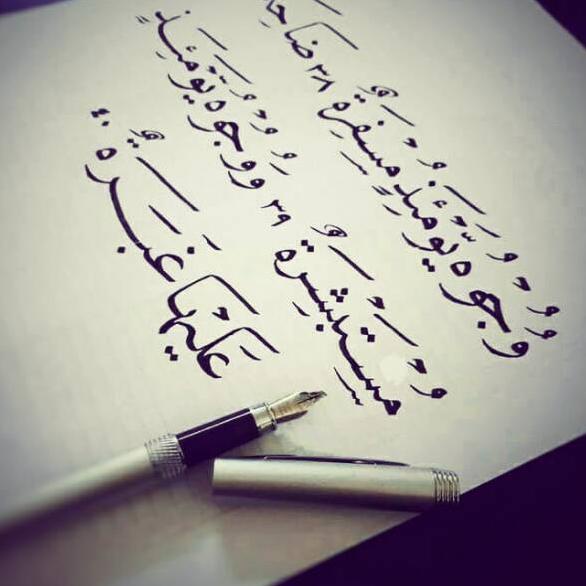 وُجُوهٌ يَوْمَئِذٍ مُسْفِرَةٌ ٣٨ ضَاحِ
مُسْتَبْشِرَةٌ ٣٩ وَوُجُوهٌ يَوْمَئِذٍ
عَلَيْهَا غَبَرَةٌ ٤٠